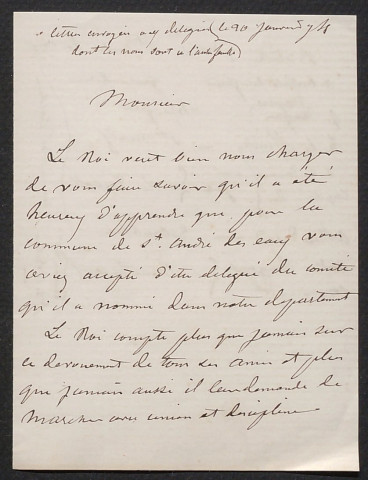 lettres envoyées aux délégués (le 20 janvier 74
dont les noms sont à l'autre feuille)
Monsieur
Le Roi veut bien nous charger
de vous faire savoir qu'il a été
heureux d'apprendre que pour la
commune de St. André des eaux vous
aviez accepté d'être délégué du comité
qu'il a nommé dans notre département
Le Roi compte plus que jamais sur
le dévouement de tous ses amis et plus
que jamais aussi il leur demande de
marcher avec union et discipline